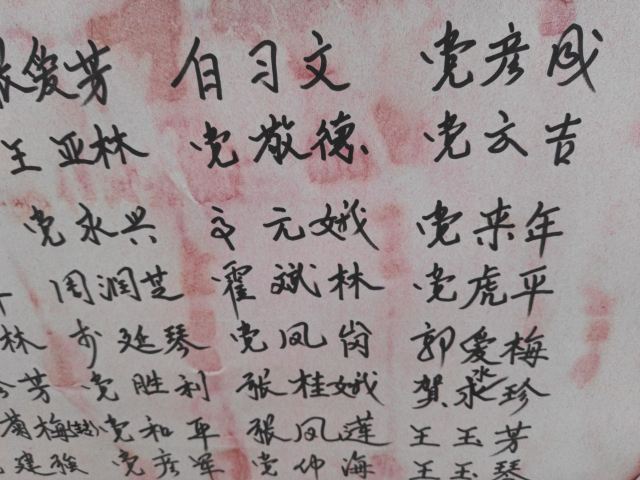 张爱芳 白习文 党彦成
王亚林 党敬德 党文吉
党永兴 辛元娥 党来年
周润芝 霍斌林 党虎平
林 于延琴 党凤岗 郭爱梅
芳 党胜利 张桂娥 贺永珍
菊梅 党和平 张凤莲 王玉芳
建强 党彦军 党仲海 王玉琴